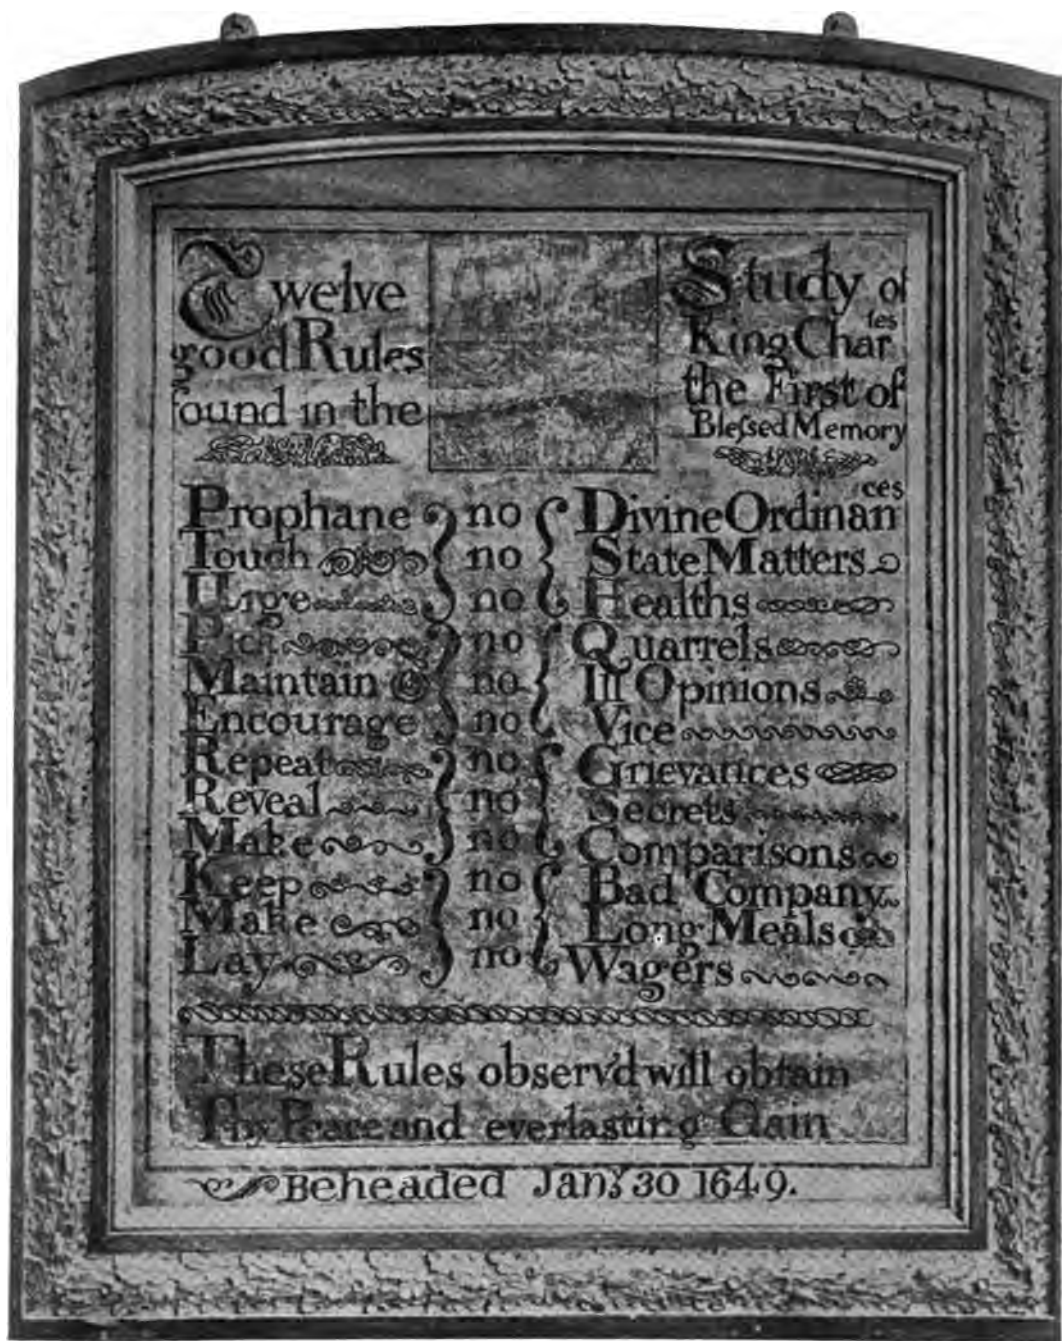 Twelve
good Rules
found in the
Study of
King Charles
the First of
Blessed Memory
Prophane no Divine Ordinances
Touch no State Matters
Urge no Healths
Pick no Quarrels
Maintain no Ill Opinions
Encourage no Vice
Repeat no Grievances
Reveal no Secrets
Make no Comparisons
Keep no Bad Company
Make no Long Meals
Lay no Wagers
These Rules observ'd will obtain
Thy Peace and everlasting Gain
Beheaded Jany 30 1649.